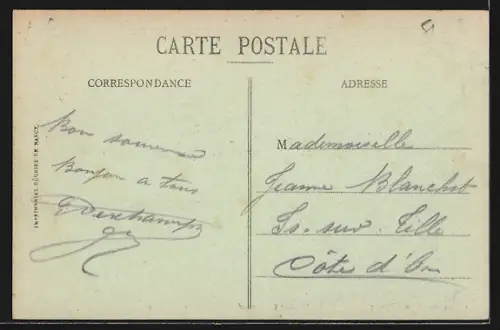 CARTE POSTALE
CORRESPONDANCE
ADRESSE
IMPRIMERIES RÉUNIES DE NANCY
Bon souvenir
Bonjour a tous
Deschamps
Mademoiselle
Jeanne Blanchot
Is-sur-Tille
Côte d'Or